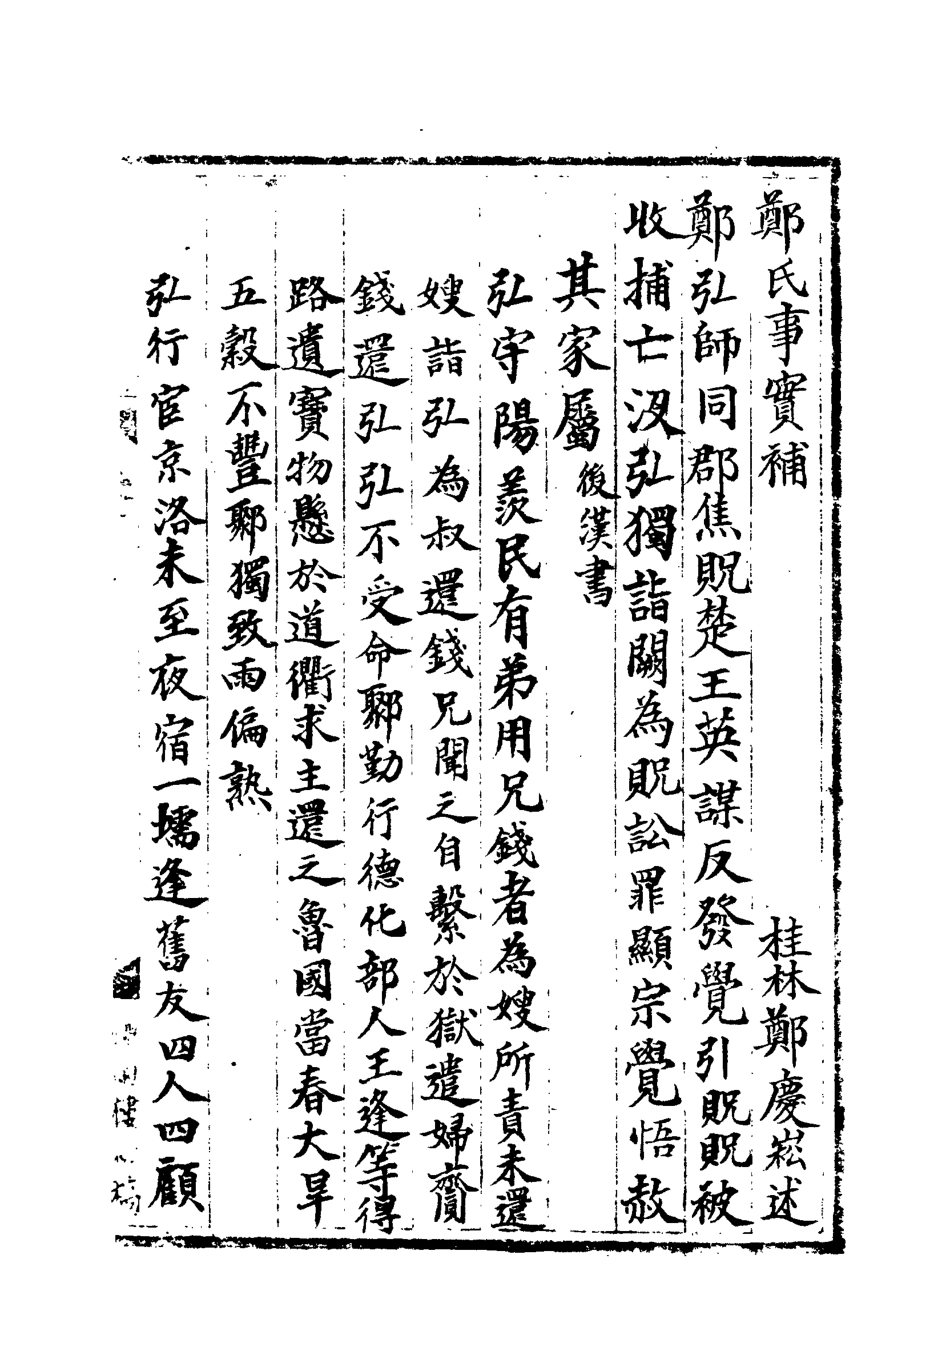 鄭氏事實補　桂林鄭慶崧述
鄭弘師同郡焦貺楚王英謀反發覺引貺貺被
收捕亡沒弘獨詣闕為貺訟罪顯宗覺悟赦
其家屬後漢書
弘守陽羨民有弟用兄錢者為嫂所責未還
嫂詣弘為叔還錢兄聞之自繫於獄遣婦齎
錢還弘弘不受命鄹勤行德化部人王逢等得
路遺寶物懸於道衢求主還之魯國當春大旱
五穀不豐鄹獨致雨偏熟
弘行宦京洛未至夜宿一壖逢舊友四人四顧
樓
稿